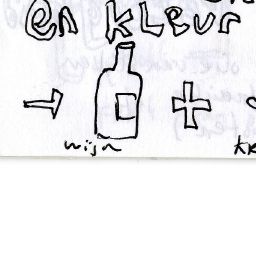 en kleur
wijn